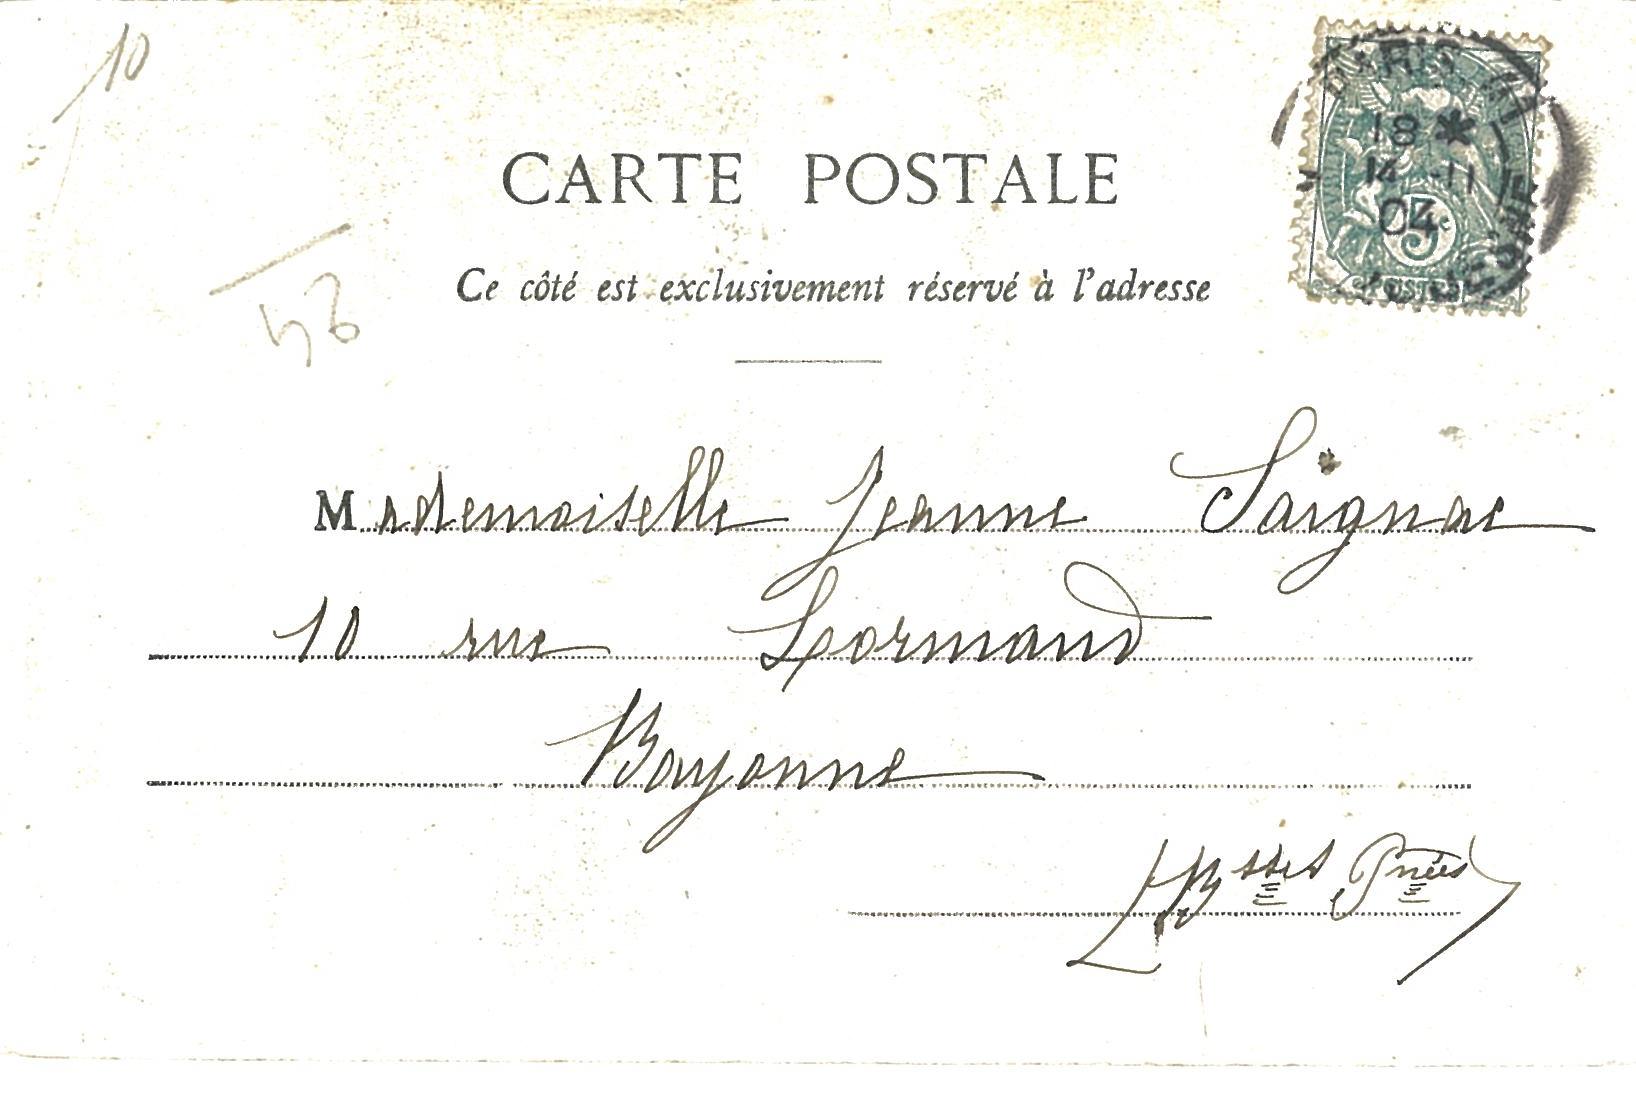 10
CARTE POSTALE
Ce côté est exclusivement réservé à l'adresse
PARIS
18 *
14 -11
04
5c
POSTES
Mademoiselle Jeanne Saignac
10 rue Lormand
Bayonne
Bsses Pnées